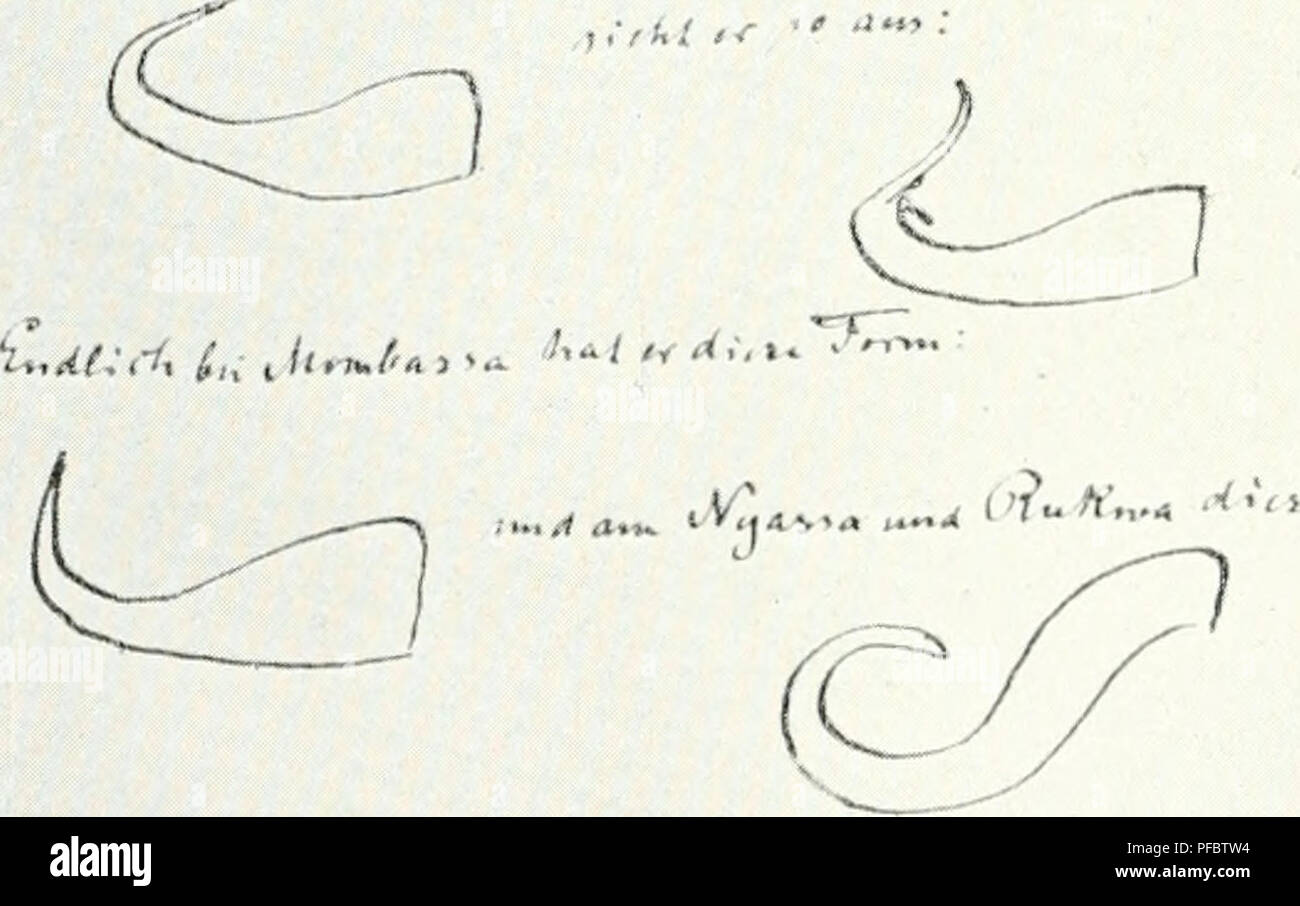 sieht er so aus:
Endlich bei Mombassa hat er diese Form:
und am Nyassa und Rukwa dies
alamy
Image ID: PFBTW4
www.alamy.com